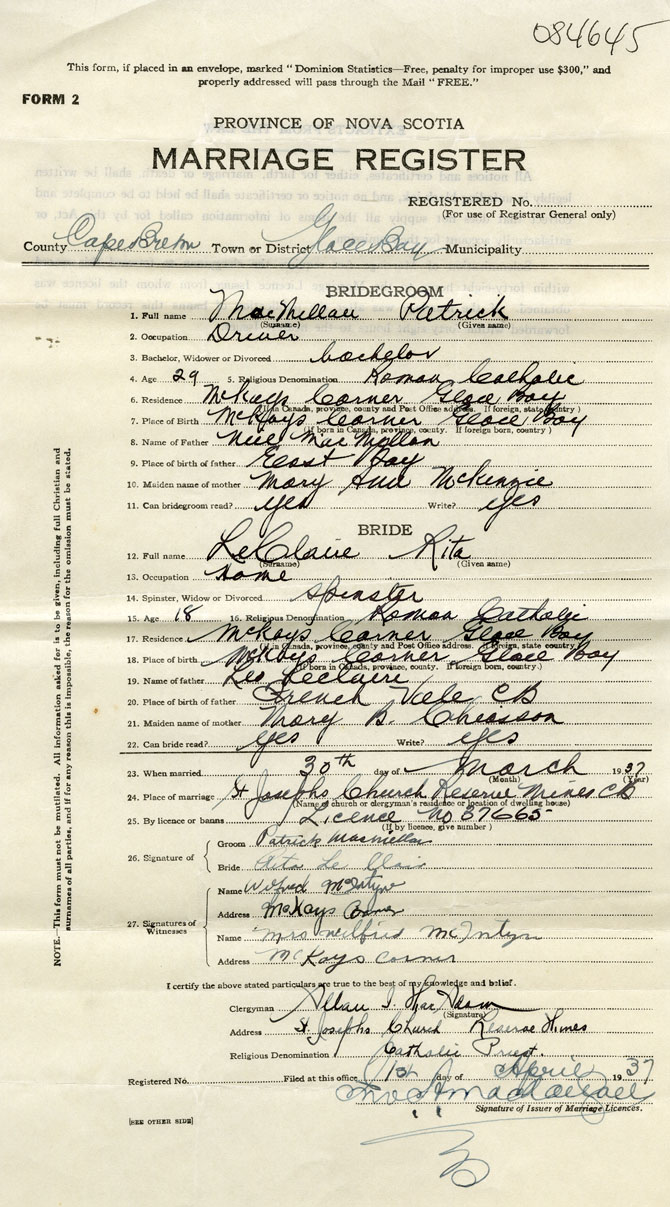 084645
This form, if placed in an envelope, marked "Dominion Statistics—Free, penalty for improper use $300," and
properly addressed will pass through the Mail "FREE."
FORM 2
PROVINCE OF NOVA SCOTIA
MARRIAGE REGISTER
REGISTERED No.
(For use of Registrar General only)
County Cape Breton Town or District Glace Bay Municipality
BRIDEGROOM
1. Full name MacMillan Patrick
(Surname) (Given name)
2. Occupation Driver
3. Bachelor, Widower or Divorced bachelor
4. Age 29 5. Religious Denomination Roman Catholic
6. Residence McKays Corner Glace Bay
(If in Canada, province, county and Post Office address. If foreign, state country)
7. Place of Birth McKays Corner Glace Bay
(If born in Canada, province, county. If foreign born, country)
8. Name of Father Neil MacMillan
9. Place of birth of father East Bay
10. Maiden name of mother Mary Ann McKenzie
11. Can bridegroom read? yes Write? yes
BRIDE
12. Full name LeClaire Rita
(Surname) (Given name)
13. Occupation Home
14. Spinster, Widow or Divorced Spinster
15. Age 18 16. Religious Denomination Roman Catholic
17. Residence McKays Corner Glace Bay
(If in Canada, province, county and Post Office address. If foreign, state country)
18. Place of birth McKays Corner Glace Bay
(If born in Canada, province, county. If foreign born, country)
19. Name of father Leclaire
20. Place of birth of father French Vale CB
21. Maiden name of mother Mary B. Chiasson
22. Can bride read? yes Write? yes
23. When married 30th day of March 1937
(Month) (Year)
24. Place of marriage St Josephs Church Reserve Mines CB
(Name of church or clergyman's residence or location of dwelling house)
25. By licence or banns Licence No 37665
(If by licence, give number)
26. Signature of
Groom Patrick MacMillan
Bride Rita Le Clair
27. Signatures of
Witnesses
Name Wilfred McIntyre
Address McKays Corner
Name Mrs Wilfred McIntyre
Address McKays corner
I certify the above stated particulars are true to the best of my knowledge and belief.
Clergyman Allan J. MacAdam
(Signature)
Address St. Josephs Church Reserve Mines
Religious Denomination Catholic Priest.
Registered No. Filed at this office 1st day of April 1937
Signature of Issuer of Marriage Licences.
[SEE OTHER SIDE]
NOTE.—This form must not be mutilated. All information asked for is to be given, including full Christian and
surnames of all parties, and if for any reason this is impossible, the reason for the omission must be stated.